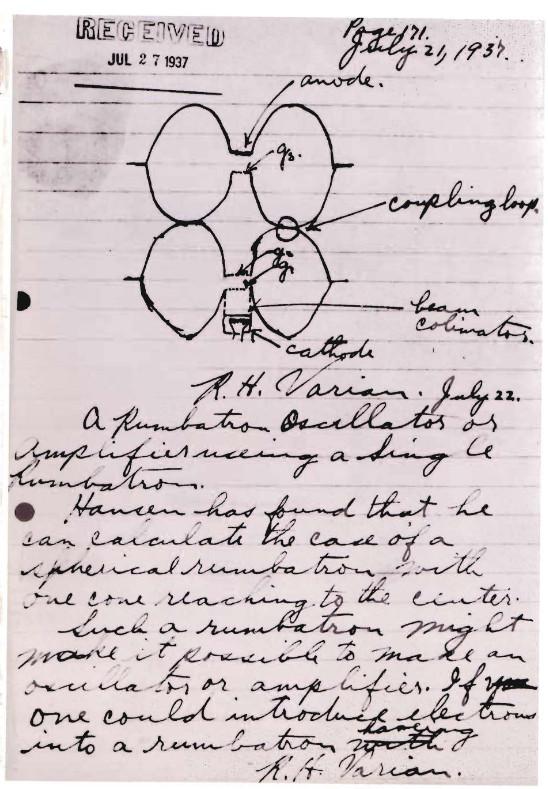 RECEIVED
JUL 27 1937
Page 171.
July 21, 1937.
anode.
g3.
coupling loop.
g2
g1
beam
colimator.
cathode
R. H. Varian. July 22.
A Rumbatron Oscillator or
Amplifier useing a Single
Rumbatron.
Hansen has found that he
can calculate the case of a
spherical rumbatron with
one cone reaching to the center.
Such a rumbatron might
make it possible to make an
oscillator or amplifier. If
one could introduce electrons
into a rumbatron having
R. H. Varian.